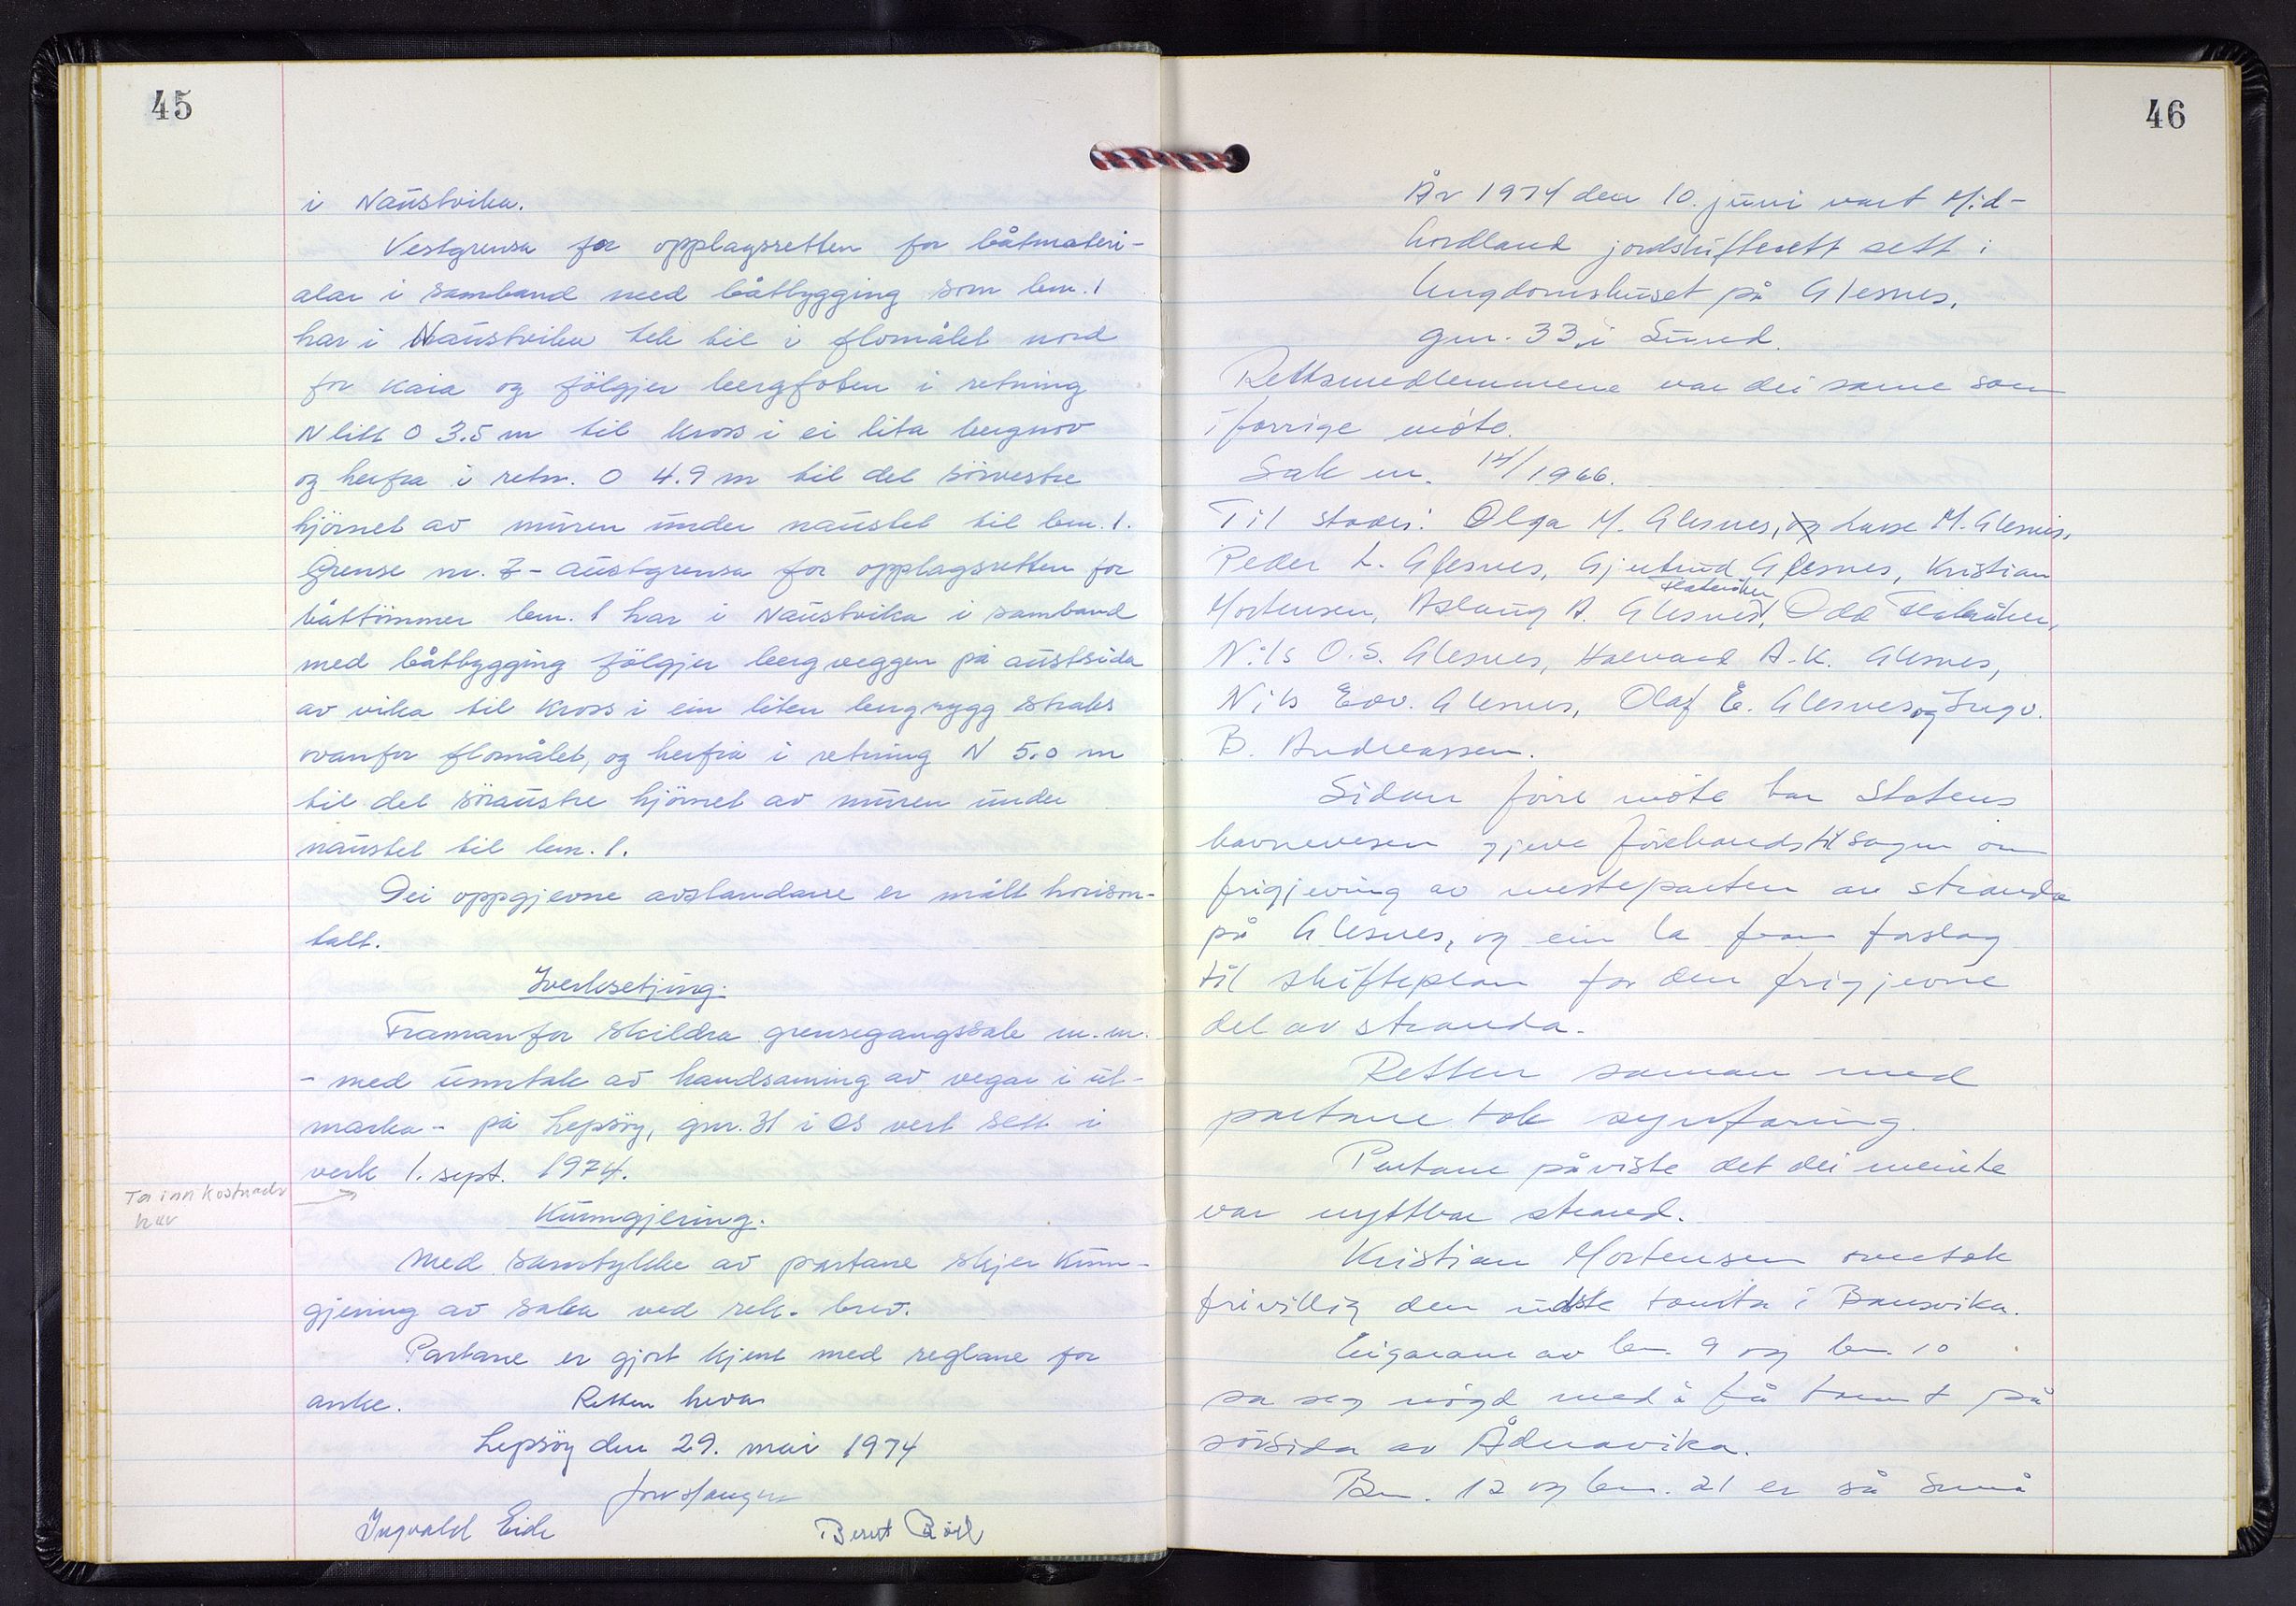 45
i Naustvika.
Vestgrensa for opplagsretten for båtmateri-
alar i samband med båtbygging som bnr. 1
har i Naustvika tek til i flomålet nord
for kaia og fölgjer bergfoten i retning
N litt O 3.5 m til kross i ei lita bergnov
og herfra i retn. O 4.9 m til det sörvestre
hjörnet av muren under naustet til bnr. 1.
Grense nr. 7 - austgrensa for opplagsretten for
båttömmer bnr. 1 har i Naustvika i samband
med båtbygging fölgjer bergveggen på austsida
av vika til kross i ein liten bergrygg straks
ovanfor flomålet, og herfra i retning N 5.0 m
til det söraustre hjörnet av muren under
naustet til bnr. 1.
Dei oppgjevne avstandane er målt horison-
talt.
Iverksetjing.
Framanfor skildra grensegangssak m.m.
- med unntak av handsaming av vegar i ut-
marka - på Lepsöy, gnr. 31 i Os vert sett i
verk 1. sept. 1974.
Ta inn kostnads
her
Kunngjering.
Med samtykke av partane skjer kunn-
gjering av saka ved rek. brev.
Partane er gjort kjent med reglane for
anke. Retten heva
Lepsöy den 29. mai 1974
Ingvald Eide Bernt
46
År 1974 den 10. juni vart Mid-
hordland jordskifterett sett i
Ungdomshuset på Glesnes,
gnr. 33 i Sund.
Rettsmedlemmene var dei same som
i forrige möte.
Sak nr. 14/1966.
Til stades: Olga M. Glesnes, og Lasse M. Glesnes,
Peder L. Glesnes, Gjertrud Glesnes, Kristian
Flatråker
Mortensen, Aslaug A. Glesnes, Odd Flatråker,
Nils O.S. Glesnes, Halvard A.K. Glesnes,
Nils Edv. Glesnes, Olaf E. Glesnes og Ingv.
B. Andreassen.
Sidan förre möte har Statens
havnevesen gjeve förehandstilsagn om
frigjeving av mesteparten av stranda
på Glesnes, og ein la fram forslag
til skifteplan for den frigjevne
del av stranda.
Retten saman med
partane tok synfaring.
Partane påviste det dei meinte
var nyttbar strand.
Kristian Mortensen overtok
frivillig den indste tomta i Bansvika.
Eigarane av bnr. 9 og bnr. 10
sa seg nögd med å få tomt på
sörsida av Ådnavika.
Bnr. 12 og bnr. 21 er så små